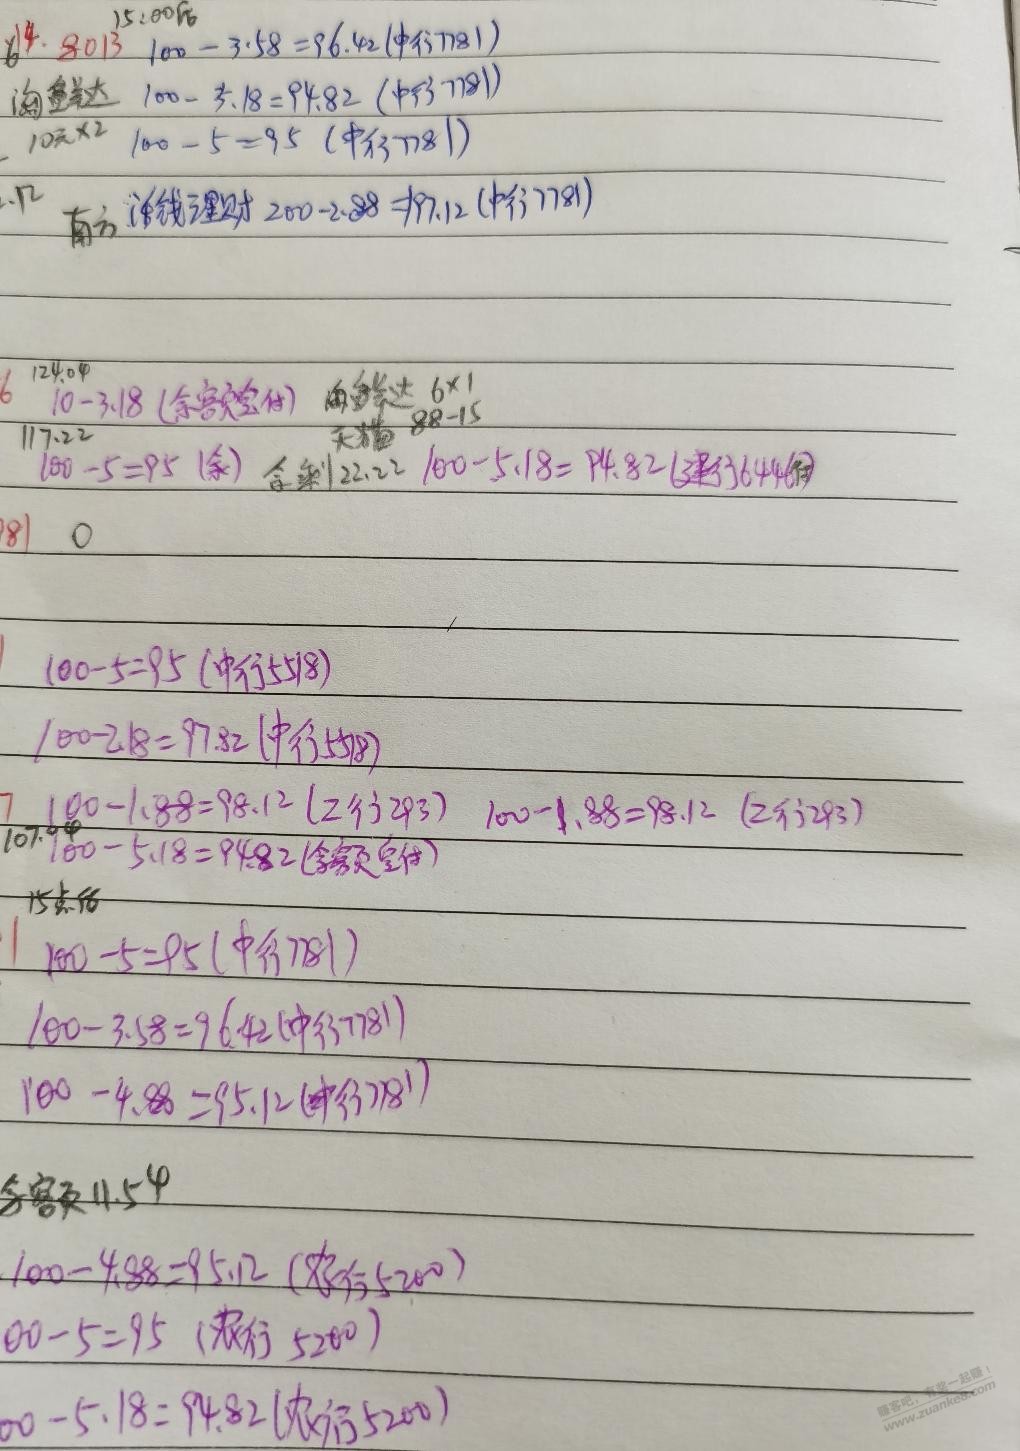 15:00后
14. 8013 100-3.58=96.42(中行7781)
淘鲜达 100-5.18=94.82 (中行7781)
10元×2 100-5=95 (中行7781)
南方 活钱理财 200-2.88=197.12(中行7781)
124.04
6 10-3.18 (余额宝付) 淘鲜达 6×1
天猫 88-15
117.22
100-5=95 (余) 余剩22.22 100-5.18=94.82(建行6446付)
0
100-5=95 (中行5518)
100-2.18=97.82(中行5518)
7 100-1.88=98.12 (工行293) 100-1.88=98.12 (工行293)
107.94
100-5.18=94.82(余额宝付)
15点后
1 100-5=95(中行7781)
100-3.58=96.42(中行7781)
100-4.88=95.12(中行7781)
余额 11.54
100-4.88=95.12 (农行5200)
00-5=95 (农行 5200)
00-5.18=94.82(农行5200)
赚客吧，有奖一起赚！
www.zuanke8.com